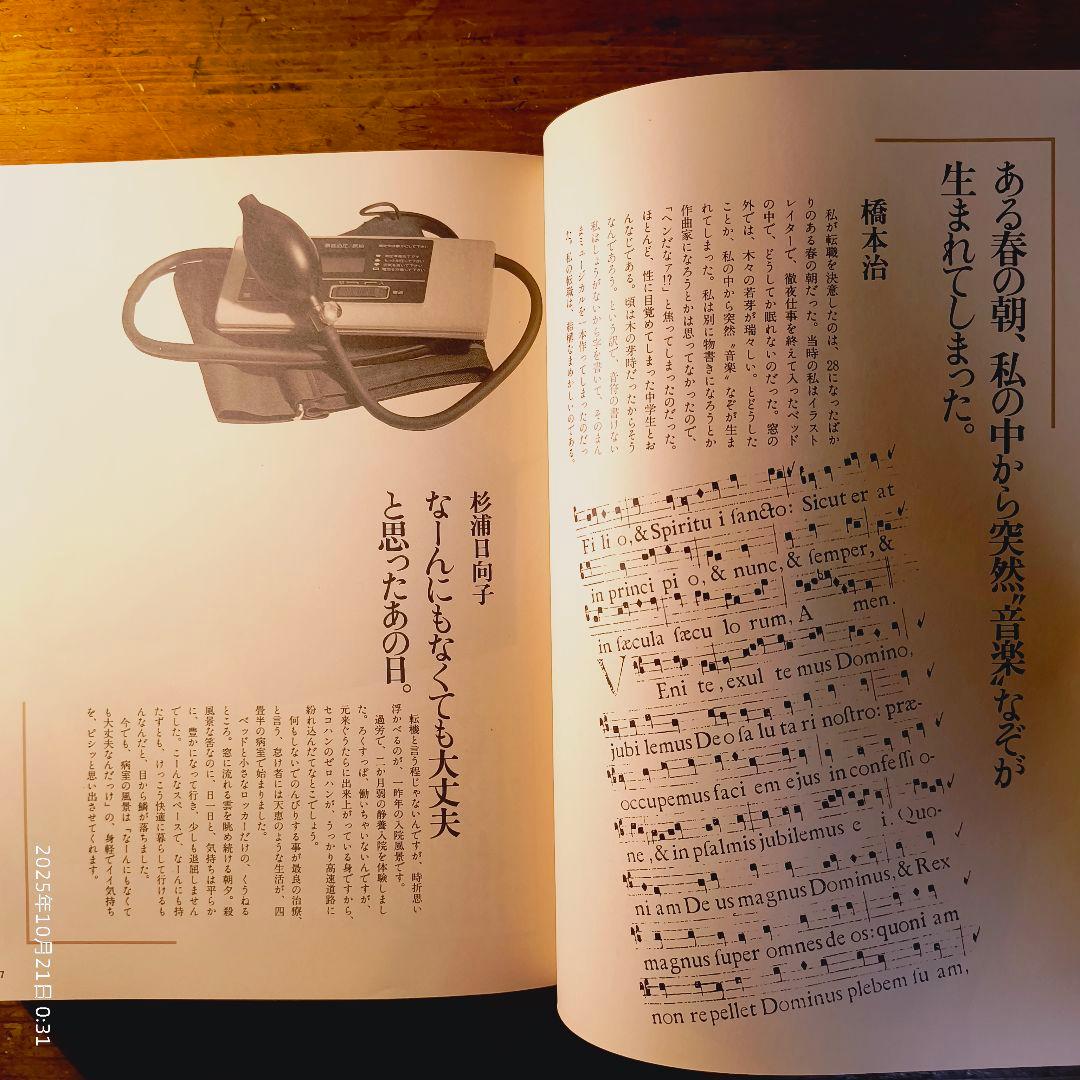 ある春の朝、私の中から突然〝音楽〟なぞが
生まれてしまった。
橋本治
私が転職を決意したのは、28になったばか
りのある春の朝だった。当時の私はイラスト
レイターで、徹夜仕事を終えて入ったベッド
の中で、どうしてか眠れないのだった。窓の
外では、木々の若芽が瑞々しい。とどうした
ことか、私の中から突然〝音楽〟なぞが生ま
れてしまった。私は別に物書きになろうとか
作曲家になろうとかは思ってなかったので、
「ヘンだなァ!?」と焦ってしまったのだった。
ほとんど、性に目覚めてしまった中学生とお
んなじである。頃は木の芽時だったからそう
なんであろう。という訳で、音符の書けない
私はしょうがないから字を書いて、そのまん
まミュージカルを一本作ってしまったのだっ
た。私の転職は、結構なまめかしいのである。
Fi li o, & Spiritu i ſancto: Sicut er at
in princi pi o, & nunc, & ſemper, &
in ſæcula ſæcu lo rum, A men.
VEni te, exul te mus Domino,
jubi lemus De o ſa lu ta ri noſtro: præ-
occupemus faci em ejus in confe ſſi o-
ne, & in pſalmis jubilemus e i. Quo-
ni am De us magnus Dominus, & Rex
magnus ſuper omnes de os: quoni am
non repellet Dominus plebem ſu am,
杉浦日向子
なーんにもなくても大丈夫
と思ったあの日。
転機と言う程じゃないんですが、時折思い
浮かべるのが、一昨年の入院風景です。
過労で、二か月弱の静養入院を体験しまし
た。ろくすっぽ、働いちゃいないんですが、
元来ぐうたらに出来上がっている身ですから、
セコハンのゼロハンが、うっかり高速道路に
紛れ込んだてなとこでしょう。
何もしないでのんびりする事が最良の治療、
と言う、怠け者には天恵のような生活が、四
畳半の病室で始まりました。
ベッドと小さなロッカーだけの、くうねる
ところ。窓に流れる雲を眺め続ける朝夕。殺
風景な筈なのに、日一日と、気持ちは平らか
に、豊かになって行き、少しも退屈しません
でした。こーんなスペースで、なーんにも持
たずとも、けっこう快適に暮らして行けるも
んなんだと、目から鱗が落ちました。
今でも、病室の風景は「なーんにもなくて
も大丈夫なんだっけ」の、身軽でイイ気持ち
を、ピシッと思い出させてくれます。
7
2025年10月21日 0:31